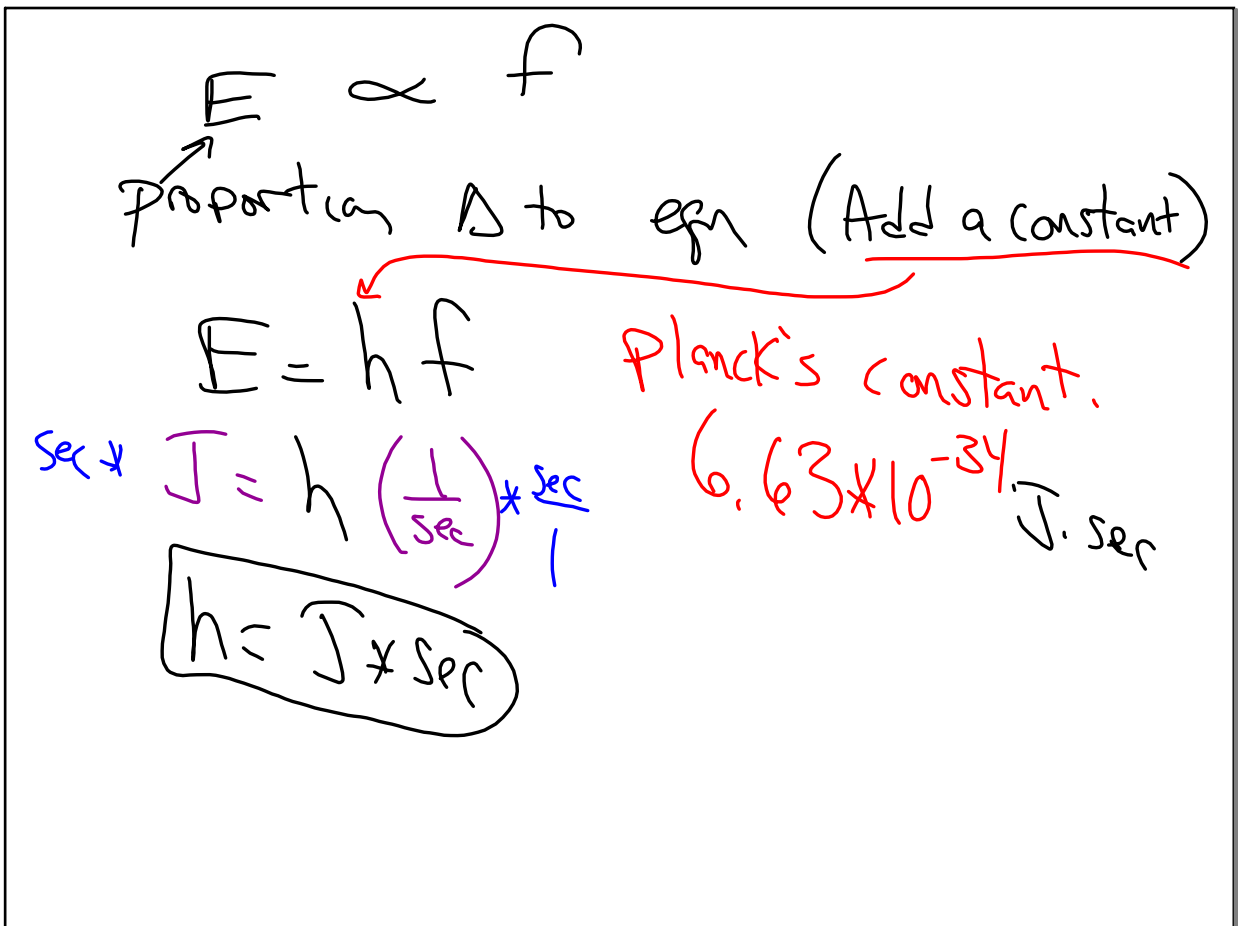 E ∝ f
Proportion Δ to eqn (Add a constant)
E = h f
Planck's constant.
6.63*10^-34 J. sec
sec * J = h (1/sec) * sec/1
h = J * sec